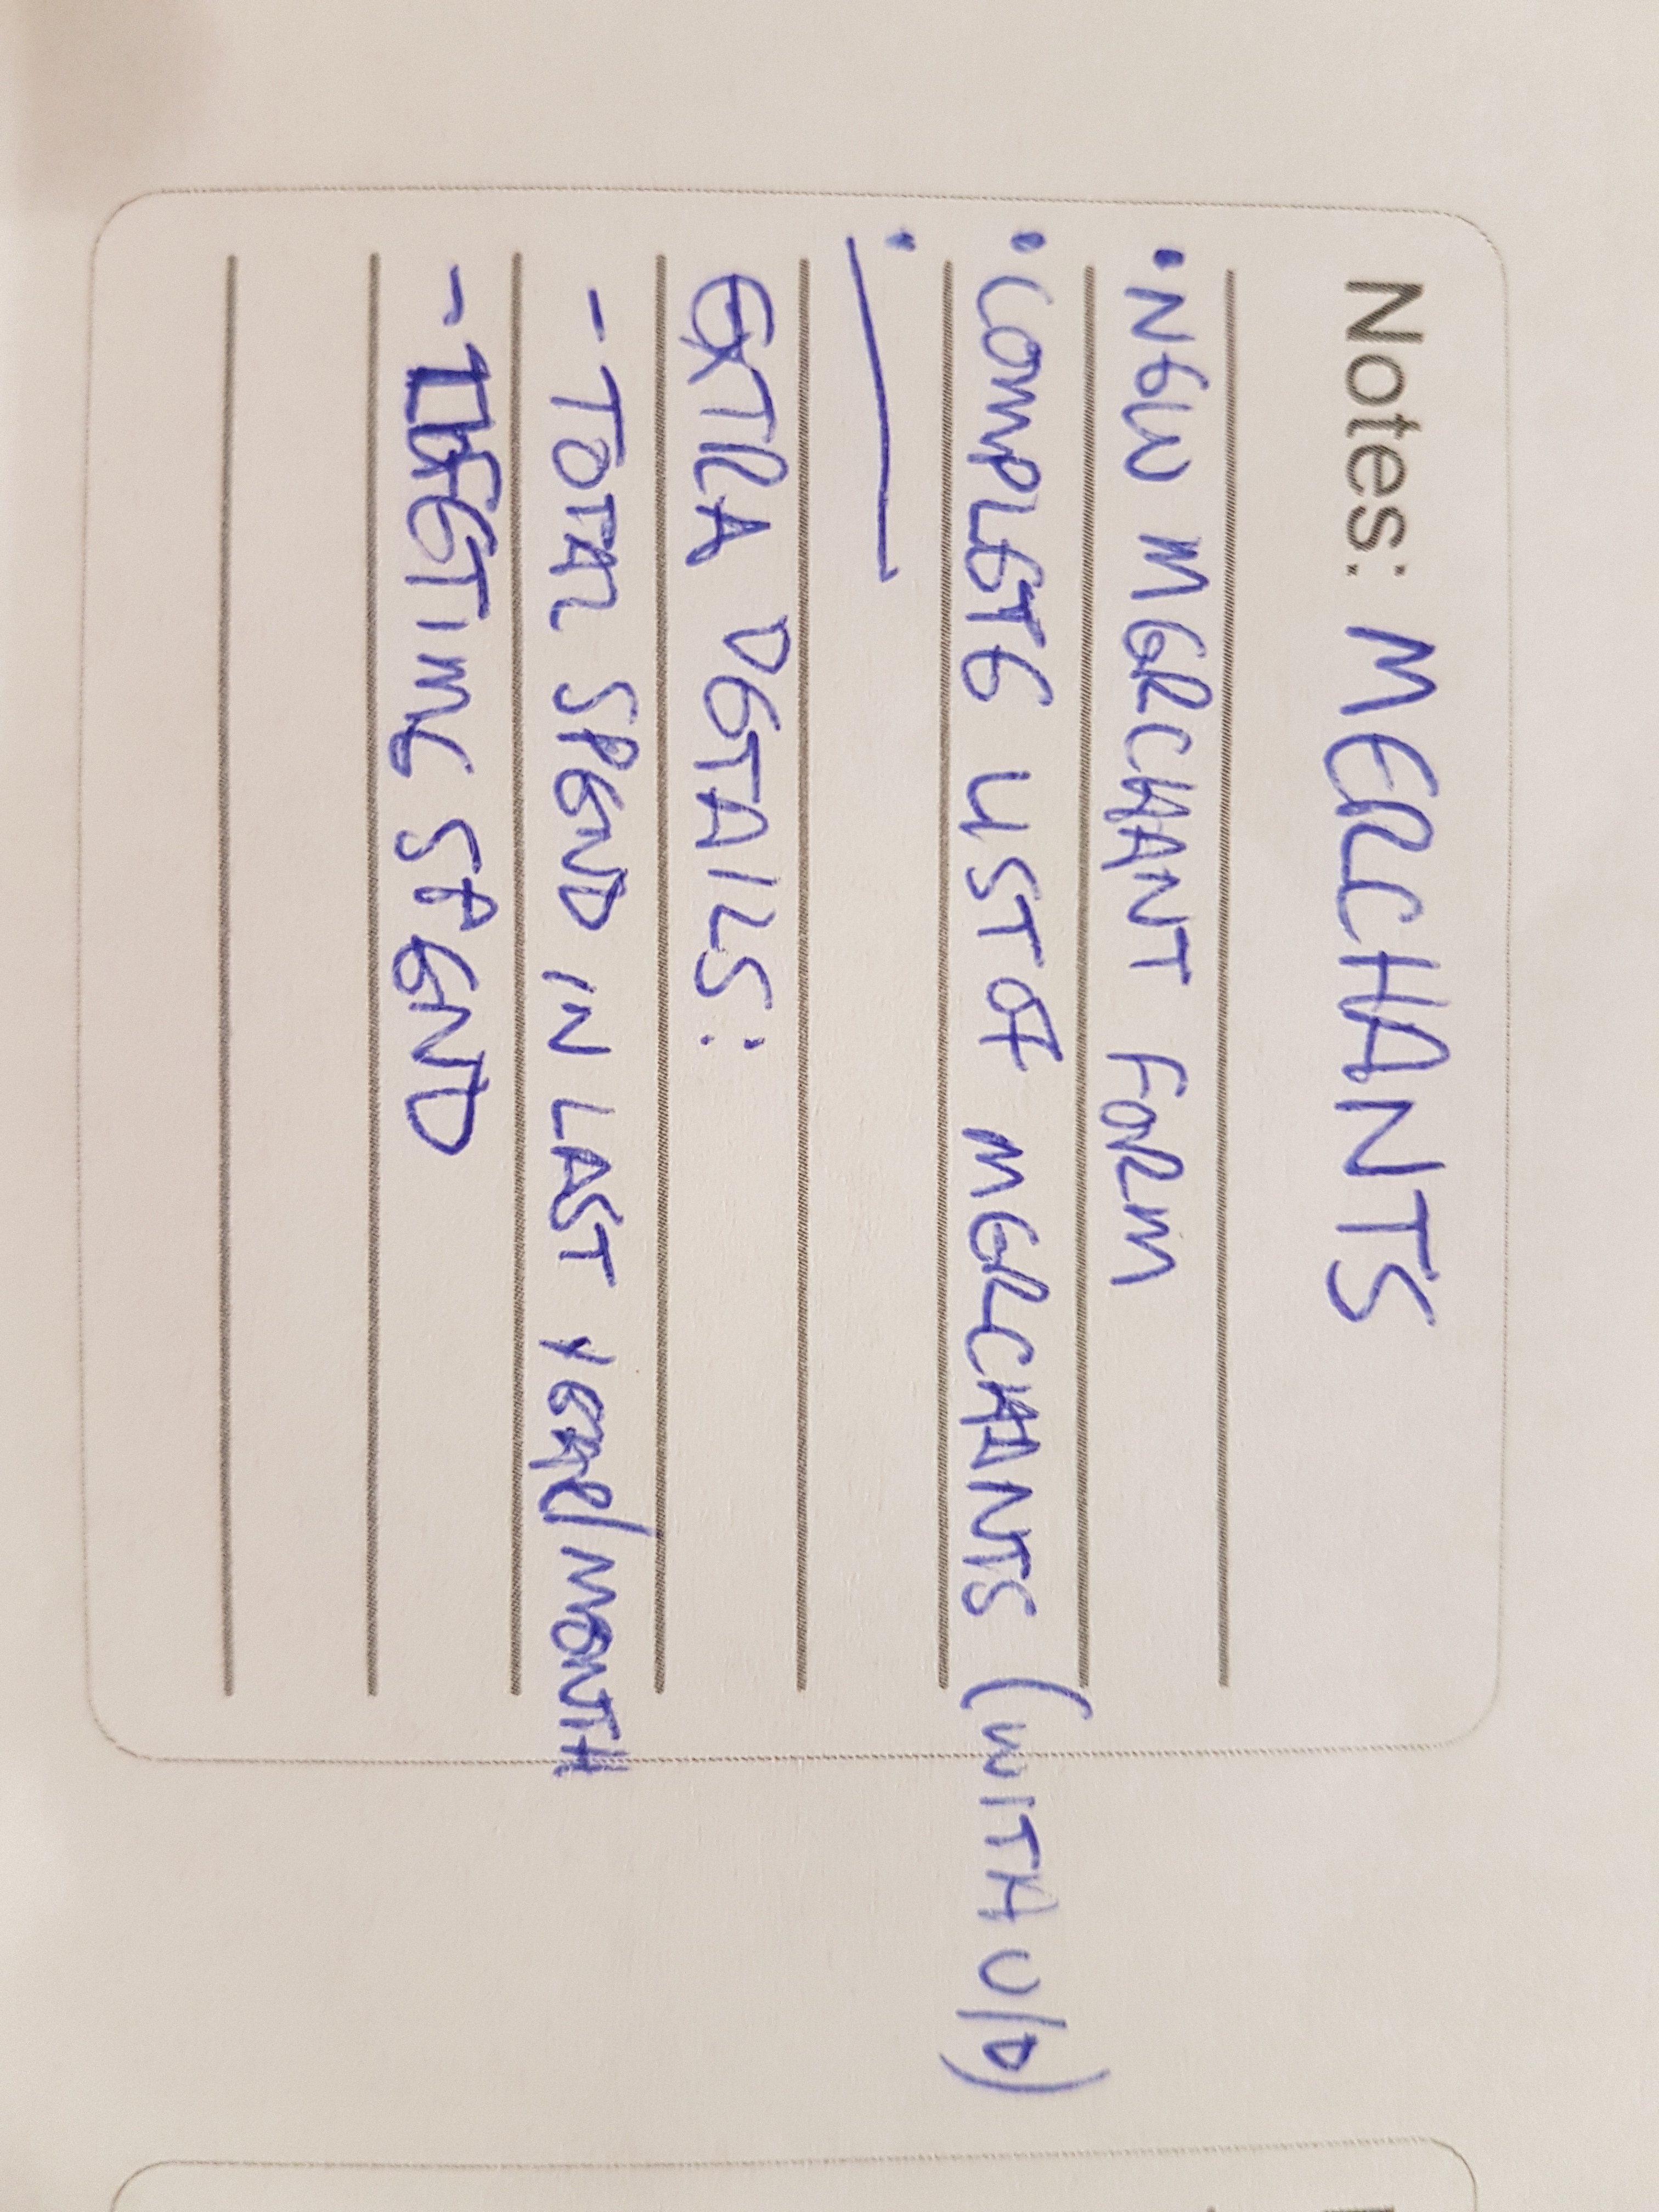 Notes: MERCHANTS
• NEW MERCHANT FORM
• COMPLETE LIST OF MERCHANTS (WITH U/D)
•
EXTRA DETAILS:
- TOTAL SPEND IN LAST YEAR/MONTH
- LIFETIME SPEND